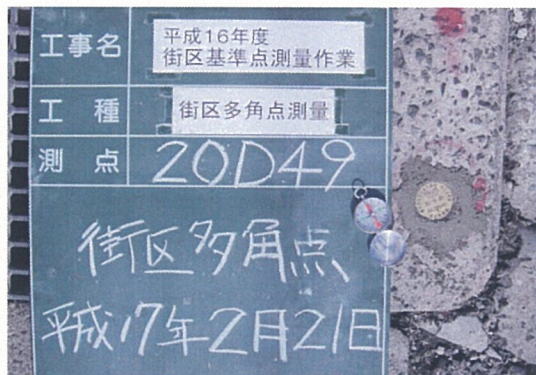 工事名
平成16年度
街区基準点測量作業
工種
街区多角点測量
測点
20D49
街区多角点
平成17年2月21日